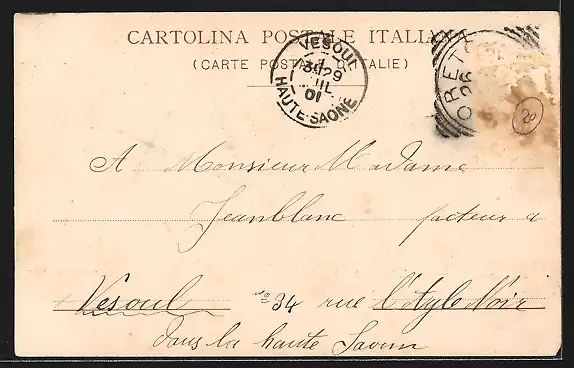 CARTOLINA POSTALE ITALIANA
(CARTE POSTALE D'ITALIE)
VESOUL
29
JUIL
01
HAUTE-SAONE
ORETO
26
20
A Monsieur Madame
Jeanblanc facteur a
Vesoul No 34 rue l'Aygle Noir
dans la haute Saonne